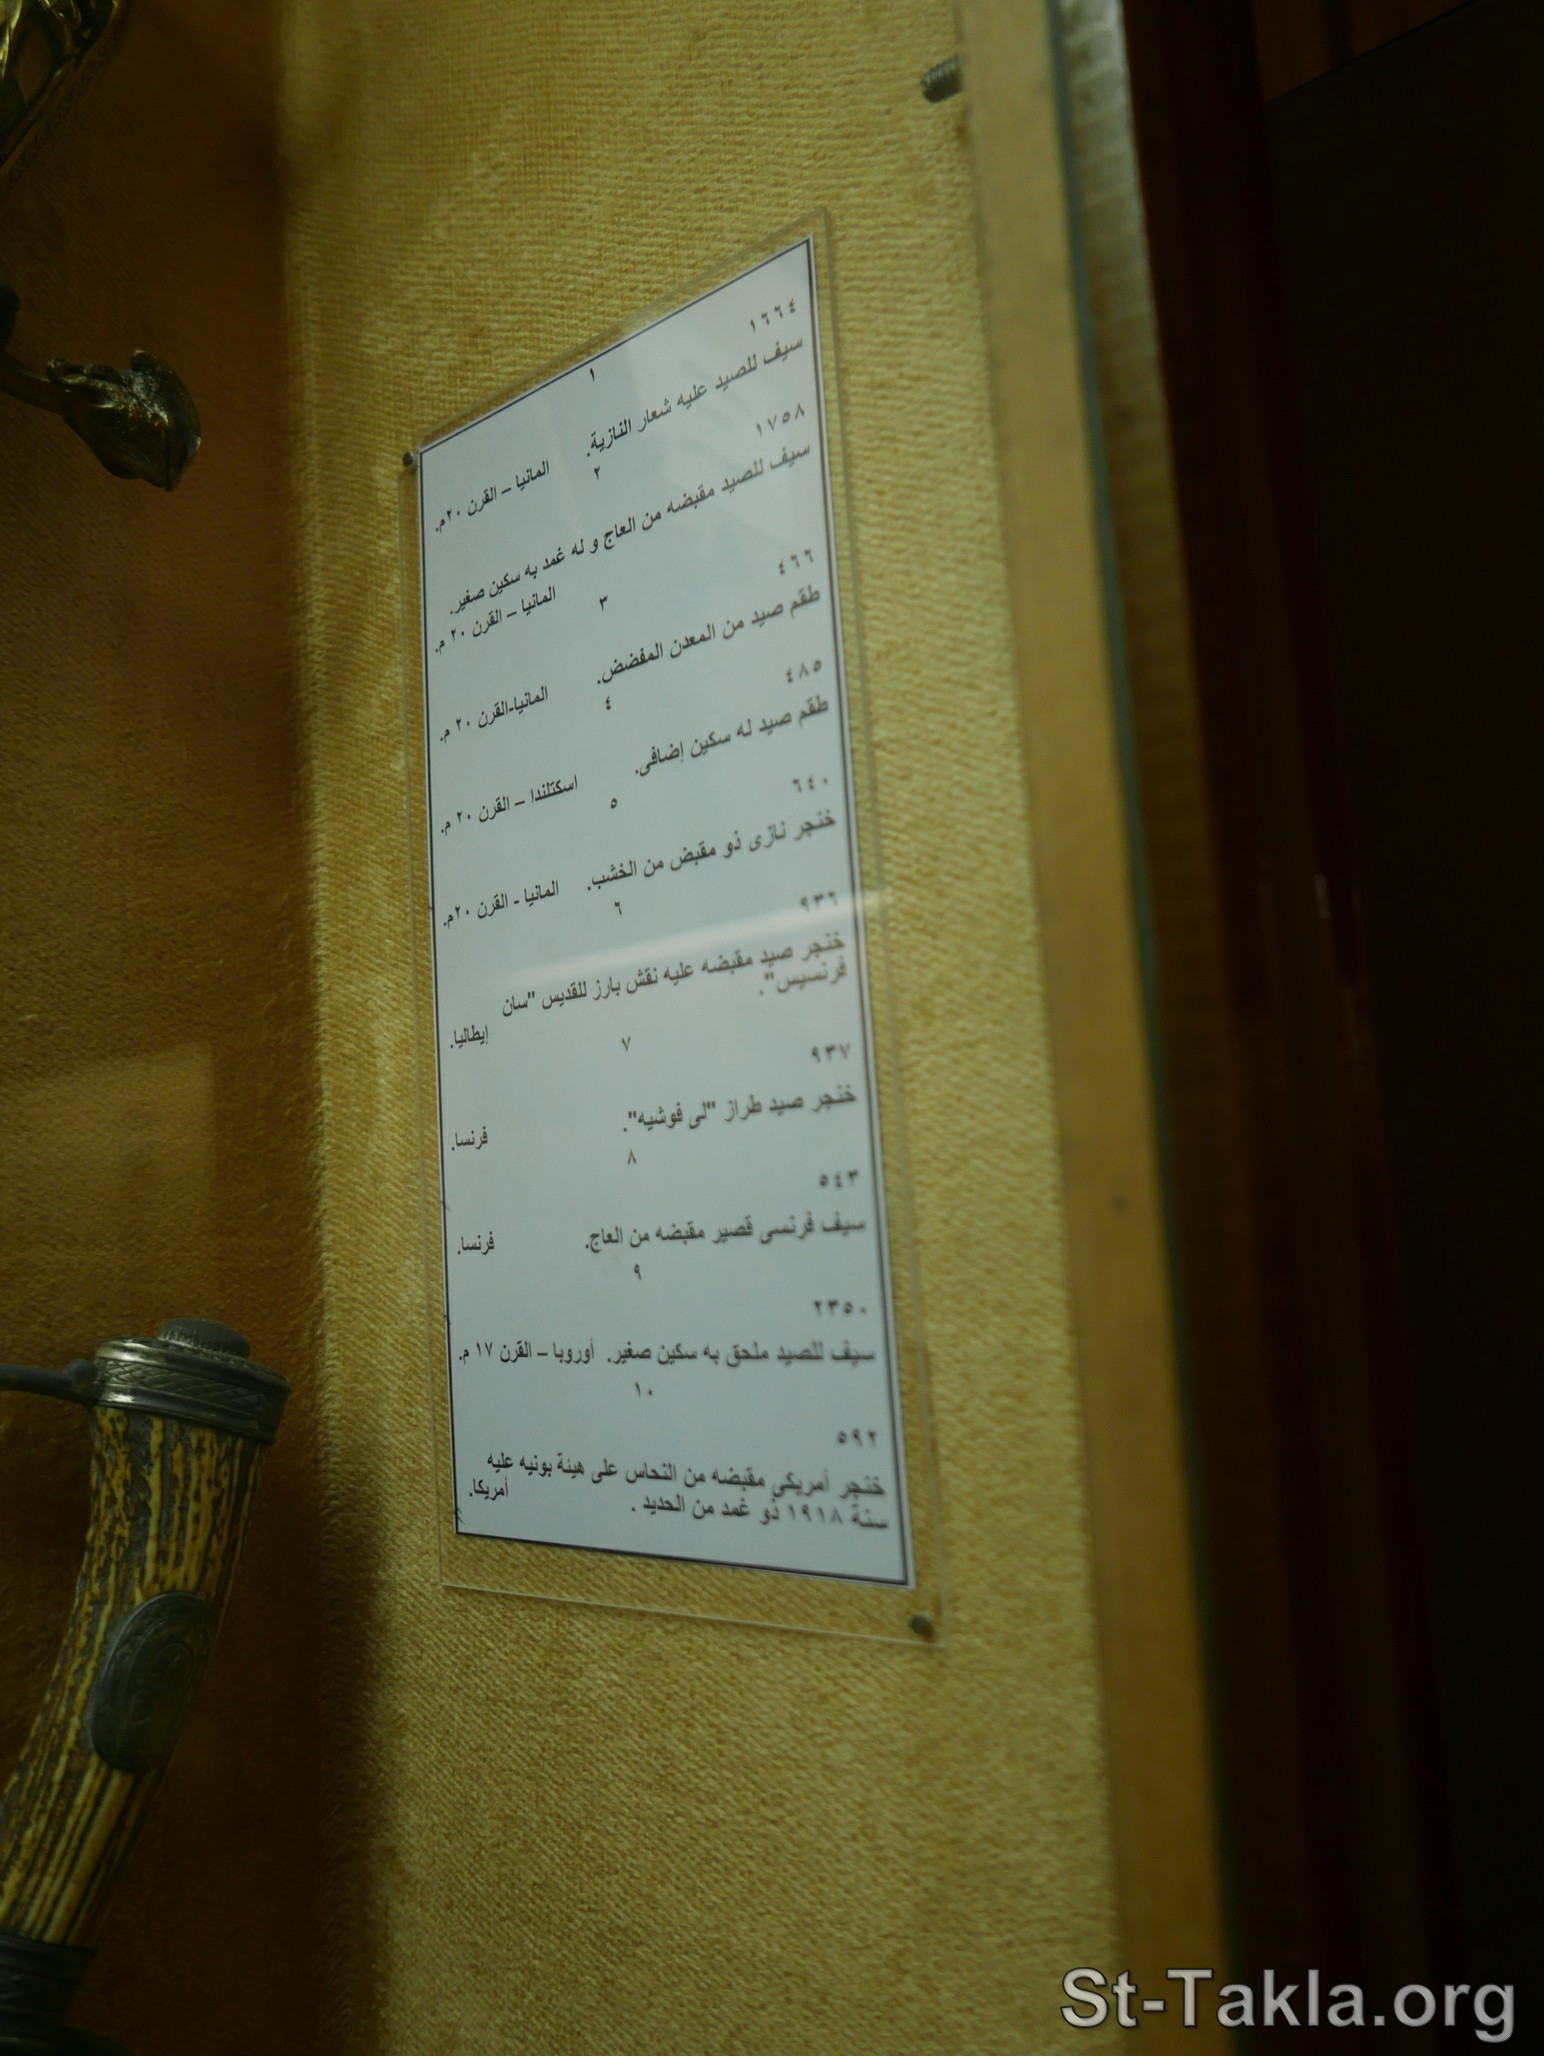 ١
١٦٦٤
سيف للصيد عليه شعار النازية. المانيا – القرن ٢٠م.
٢
١٧٥٨
سيف للصيد مقبضه من العاج و له غمد به سكين صغير.
المانيا – القرن ٢٠ م.
٣
٤٦٦
طقم صيد من المعدن المفضض. المانيا-القرن ٢٠ م.
٤
٤٨٥
طقم صيد له سكين إضافى. اسكتلندا – القرن ٢٠ م.
٥
٦٤٠
خنجر نازى ذو مقبض من الخشب. المانيا - القرن ٢٠م.
٦
٩٣٦
خنجر صيد مقبضه عليه نقش بارز للقديس "سان
فرنسيس". إيطاليا.
٧
٩٣٧
خنجر صيد طراز "لى فوشيه". فرنسا.
٨
٥٤٣
سيف فرنسى قصير مقبضه من العاج. فرنسا.
٩
٢٣٥٠
سيف للصيد ملحق به سكين صغير. أوروبا – القرن ١٧ م.
١٠
٥٩٢
خنجر أمريكى مقبضه من النحاس على هيئة بونيه عليه
سنة ١٩١٨ ذو غمد من الحديد . أمريكا.
St-Takla.org